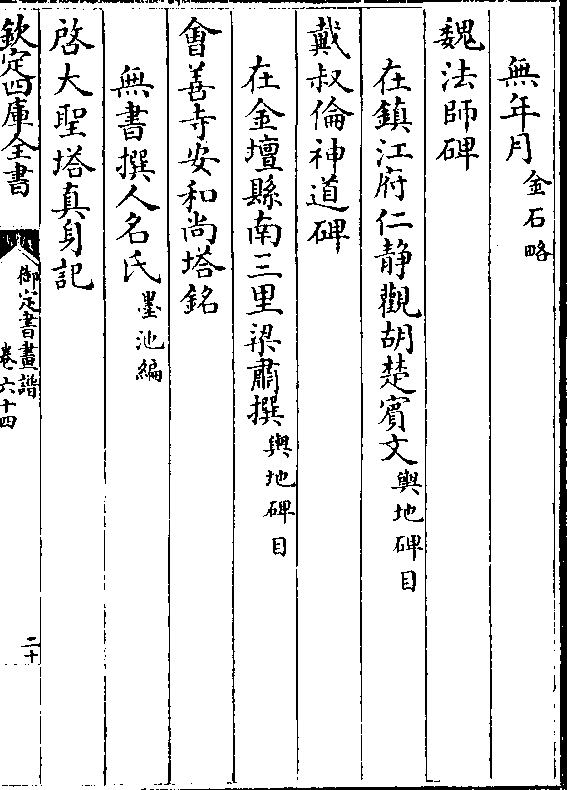 無年月金石略
魏法師碑
在鎮江府仁静觀胡楚賓文輿地碑目
戴叔倫神道碑
在金壇縣南三里梁肅撰輿地碑目
會善寺安和尚塔銘
無書撰人名氏墨池編
啓大聖塔真身記
欽定四庫全書
御定書畫譜
卷六十四
二十